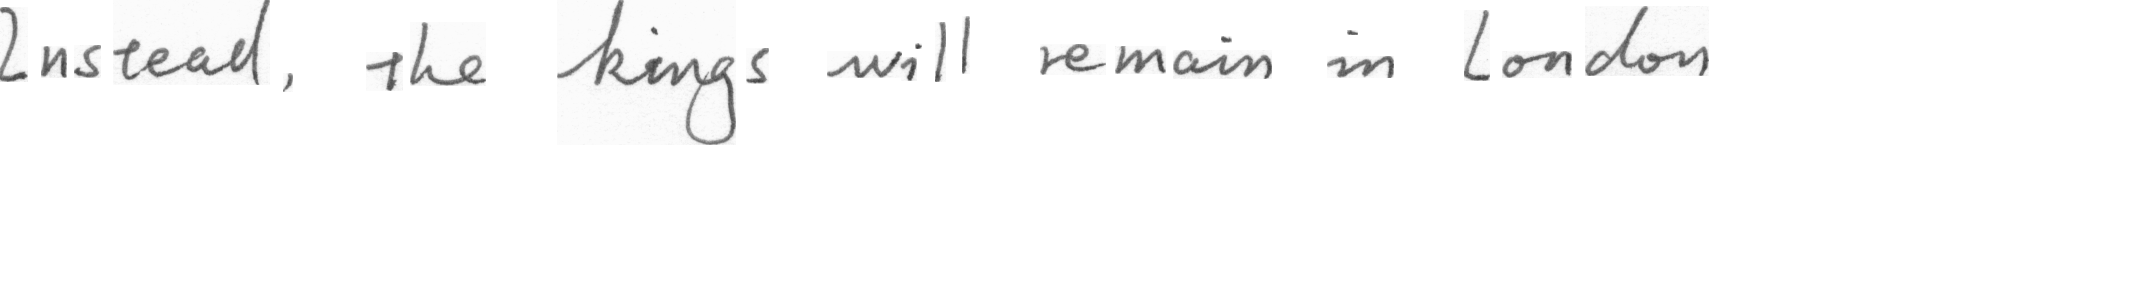 Instead, the kings will remain in London